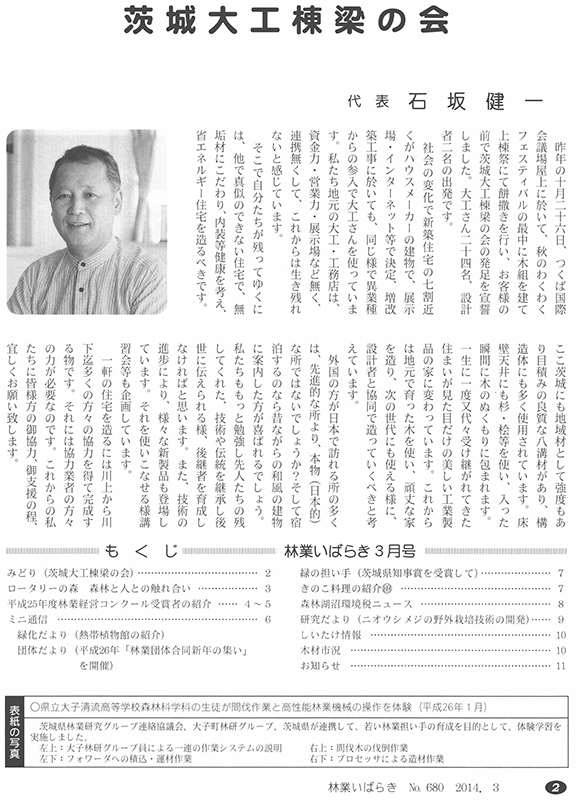 茨城大工棟梁の会
代表 石坂健一
昨年の十月二十六日、つくば国際
会議場屋上に於いて、秋のわくわく
フェスティバルの最中に木組を建て
上棟祭にて餅撒きを行い、お客様の
前で茨城大工棟梁の会の発足を宣誓
しました。大工さん二十四名、設計
者二名の出発です。
社会の変化で新築住宅の七割近
くがハウスメーカーの建物で、展示
場・インターネット等で決定、増改
築工事に於いても、同じ様で異業種
からの参入で大工さんを使っていま
す。私たち地元の大工・工務店は、
資金力・営業力・展示場など無く、
連携無くして、これからは生き残れ
ないと感じています。
そこで自分たちが残ってゆくに
は、他で真似のできない住宅で、無
垢材にこだわり、内装等健康を考え、
省エネルギー住宅を造るべきです。
ここ茨城にも地域材として強度もあ
り目積みの良質な八溝材があり、構
造体にも多く使用されています。床
壁天井にも杉・桧等を使い、入った
瞬間に木のぬくもりに包まれます。
一生に一度又代々受け継がれてきた
住まいが見た目だけの美しい工業製
品の家に変わっています。これから
は地元で育った木を使い、頑丈な家
を造り、次の世代にも使える様に、
設計者と協同で造っていくべきと考
えています。
外国の方が日本で訪れる所の多く
は、先進的な所より、本物（日本的）
な所ではないでしょうか？そして宿
泊するのなら昔ながらの和風の建物
に案内した方が喜ばれるでしょう。
私たちももっと勉強し先人たちの残
してくれた、技術や伝統を継承し後
世に伝えられる様、後継者を育成し
なければと思います。また、技術の
進歩により、様々な新製品も登場し
ています。それを使いこなせる様講
習会等も企画しています。
一軒の住宅を造るには川上から川
下迄多くの方々の協力を得て完成す
る物です。それには協力業者の方々
の力が必要なのです。これからの私
たちに皆様方の御協力、御支援の程、
宜しくお願い致します。
もくじ
林業いばらき３月号
みどり（茨城大工棟梁の会）………… 2
ロータリーの森 森林と人との触れ合い………… 3
平成25年度林業経営コンクール受賞者の紹介…… 4～5
ミニ通信………… 6
緑化だより（熱帯植物館の紹介）
団体だより（平成26年「林業団体合同新年の集い」
を開催）
緑の担い手（茨城県知事賞を受賞して）………… 7
きのこ料理の紹介………… 7
森林湖沼環境税ニュース………… 8
研究だより（ニオウシメジの野外栽培技術の開発）…… 9
しいたけ情報………… 10
木材市況………… 10
お知らせ………… 11
表紙の写真
○県立大子清流高等学校森林科学科の生徒が間伐作業と高性能林業機械の操作を体験（平成26年１月）
茨城県林業研究グループ連絡協議会、大子町林研グループ、茨城県が連携して、若い林業担い手の育成を目的として、体験学習を
実施しました。
左上：大子林研グループ員による一連の作業システムの説明 右上：間伐木の伐倒作業
左下：フォワーダへの積込・運材作業 右下：プロセッサによる造材作業
林業いばらき No. 680 2014. 3 2